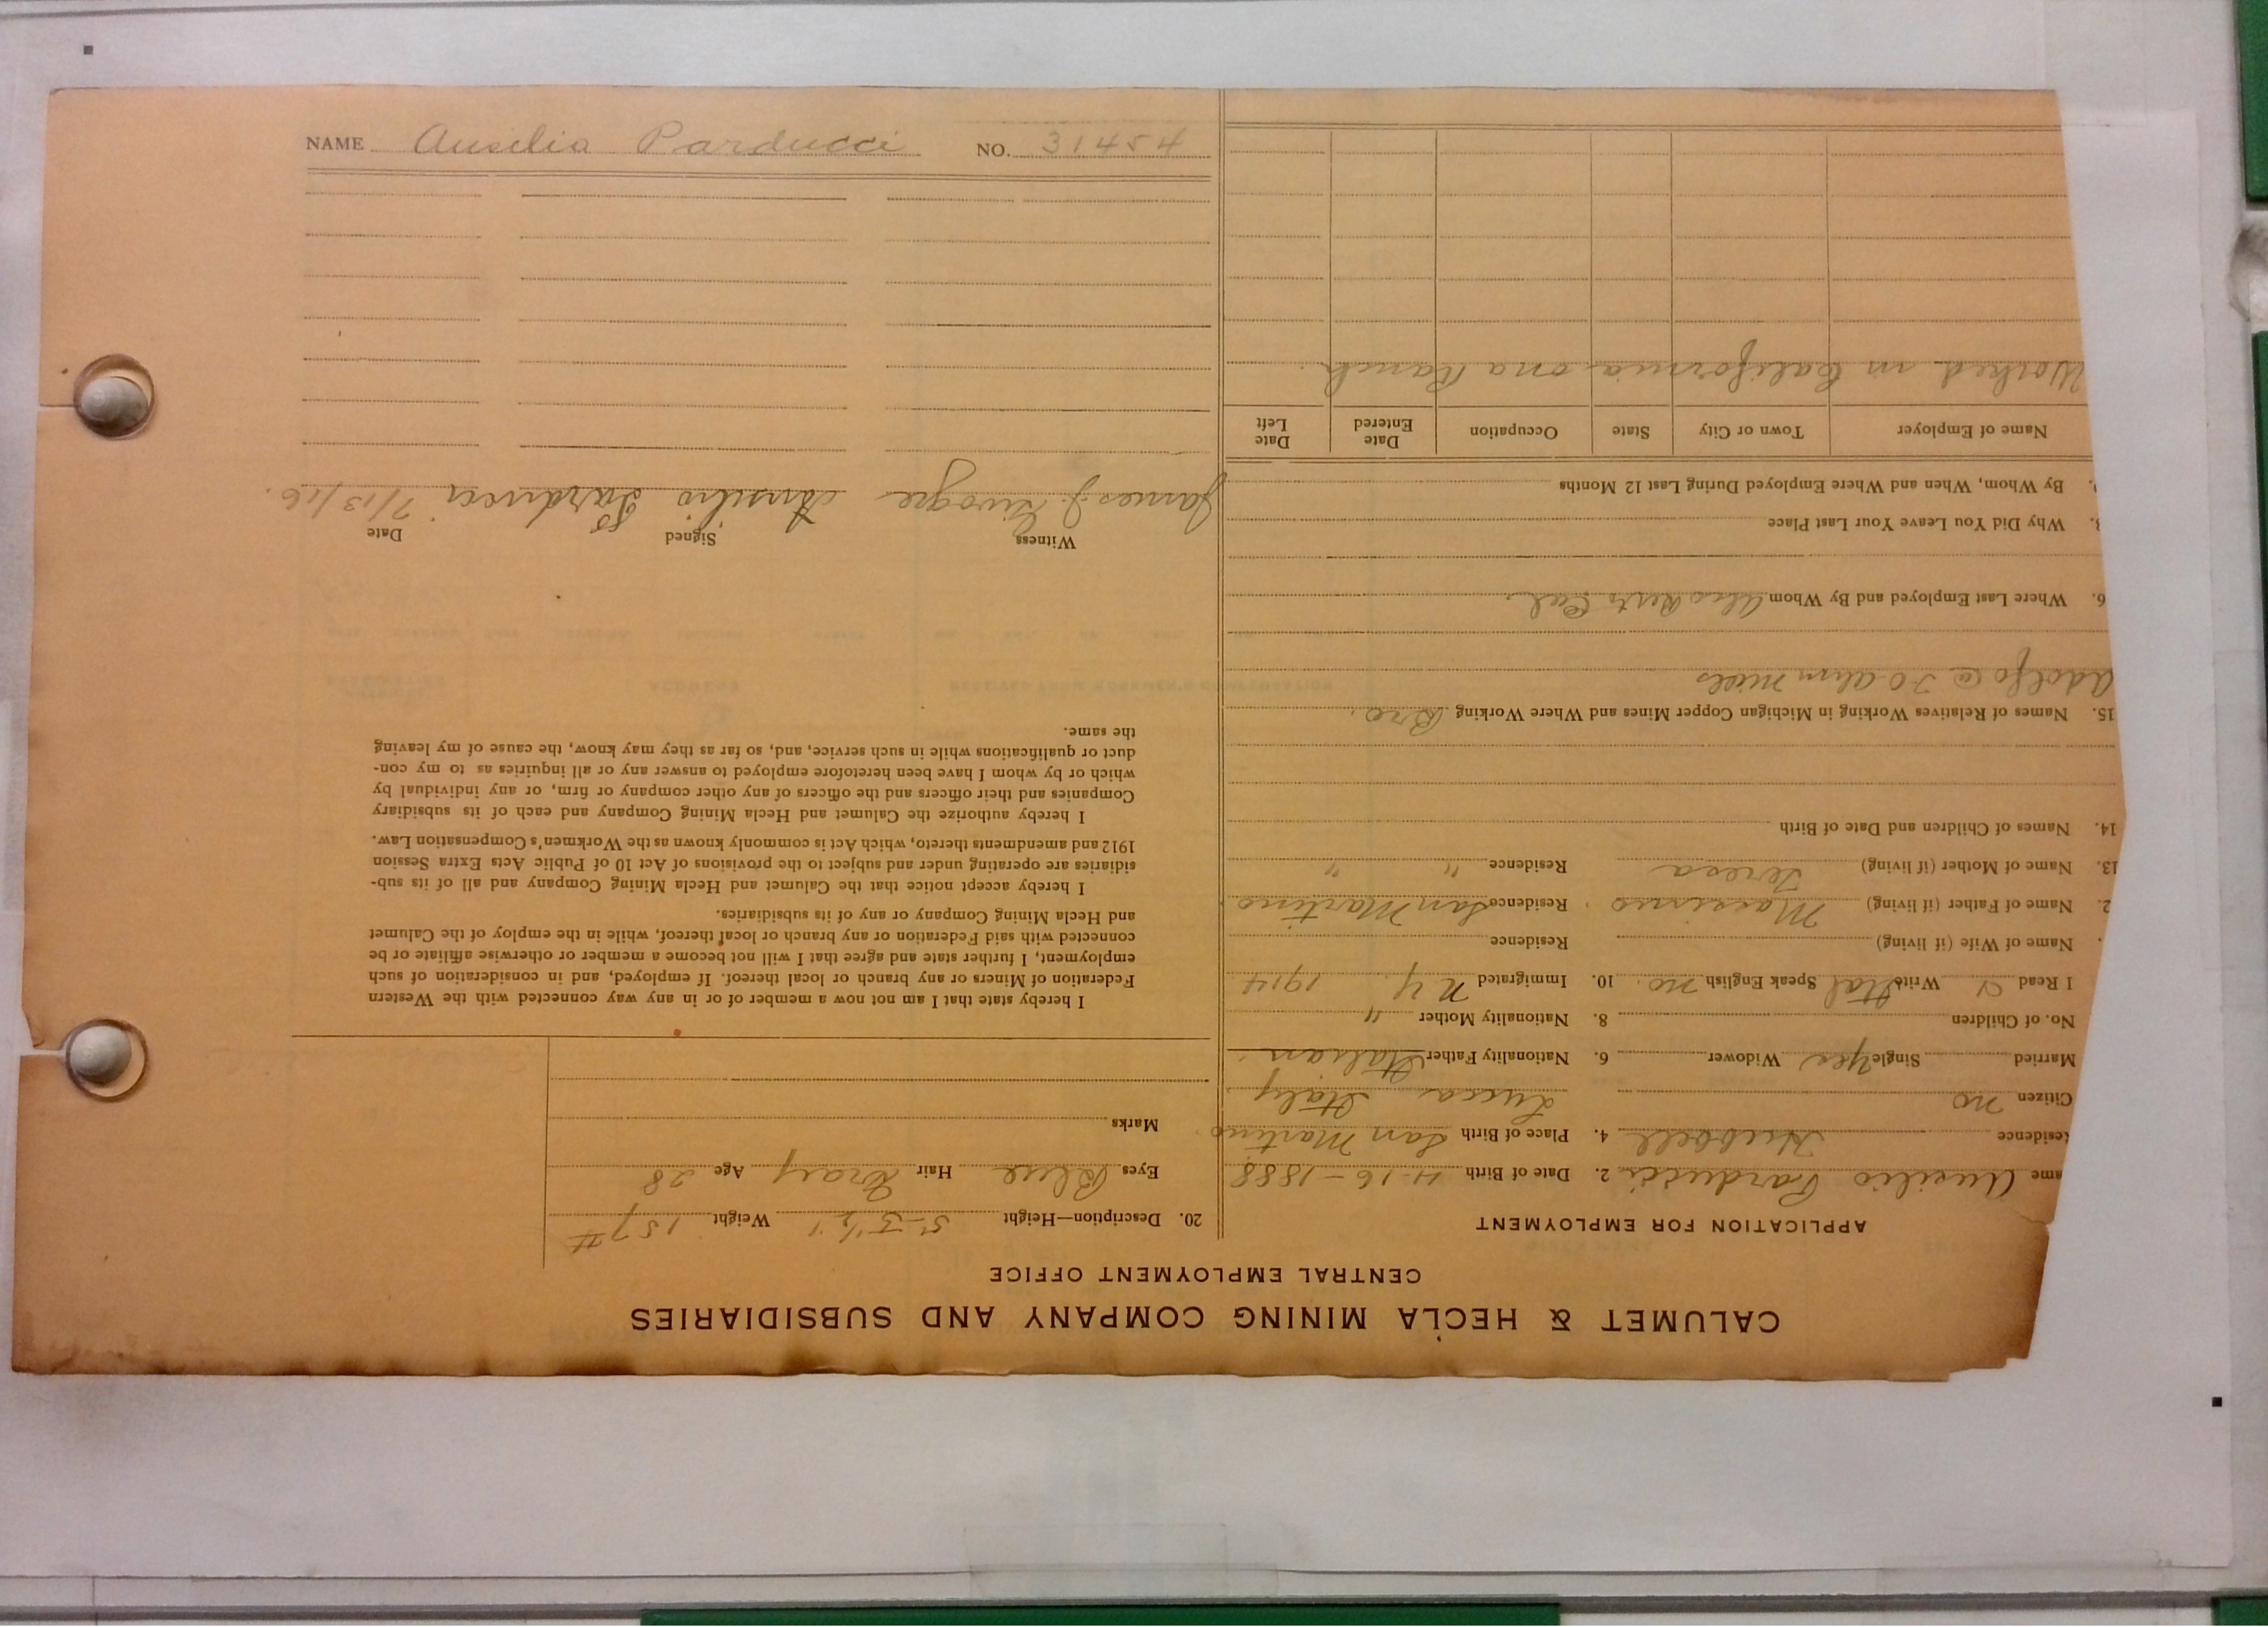 CALUMET & HECLA MINING COMPANY AND SUBSIDIARIES
CENTRAL EMPLOYMENT OFFICE
APPLICATION FOR EMPLOYMENT
ame Ausilio Parducci 2. Date of Birth 4-16-1888
Residence Hubbell 4. Place of Birth San Martino
Citizen no Lucca Italy
Married Single Yes Widower 6. Nationality Father Italian
No. of Children 8. Nationality Mother "
I Read Write Ital Speak English no. 10. Immigrated N.Y. 1914
. Name of Wife (if living) Residence
2. Name of Father (if living) Massimo Residence San Martino
13. Name of Mother (if living) Teresa Residence " "
14. Names of Children and Date of Birth
15. Names of Relatives Working in Michigan Copper Mines and Where Working Bro.
Adolfo @
6. Where Last Employed and By Whom Cal.
8. Why Did You Leave Your Last Place
9. By Whom, When and Where Employed During Last 12 Months
Name of Employer Town or City State Occupation Date Entered Date Left
Worked in California on a Ranch.
20. Description—Height 5-5½" Weight 157#
Eyes Blue Hair Gray Age 28
Marks
I hereby state that I am not now a member of or in any way connected with the Western
Federation of Miners or any branch or local thereof. If employed, and in consideration of such
employment, I further state and agree that I will not become a member or otherwise affiliate or be
connected with said Federation or any branch or local thereof, while in the employ of the Calumet
and Hecla Mining Company or any of its subsidiaries.
I hereby accept notice that the Calumet and Hecla Mining Company and all of its sub-
sidiaries are operating under and subject to the provisions of Act 10 of Public Acts Extra Session
1912 and amendments thereto, which Act is commonly known as the Workmen's Compensation Law.
I hereby authorize the Calumet and Hecla Mining Company and each of its subsidiary
Companies and their officers and the officers of any other company or firm, or any individual by
which or by whom I have been heretofore employed to answer any or all inquiries as to my con-
duct or qualifications while in such service, and, so far as they may know, the cause of my leaving
the same.
Witness Signed Date
James J. Ausilio Parducci 7/13/16.
NAME Ausilia Parducci NO. 31454